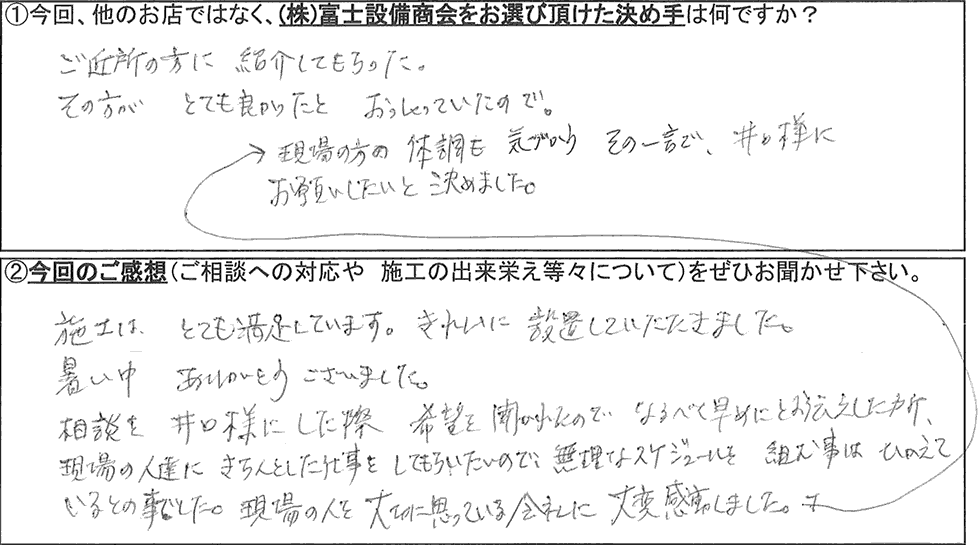 ①今回、他のお店ではなく、(株)富士設備商会をお選び頂けた決め手は何ですか？
ご近所の方に 紹介してもらった。
その方が とても良かったと おっしゃっていたので。
→ 現場の方の 体調も 気づかう その一言で、井口様に
お願いしたいと 決めました。
②今回のご感想(ご相談への対応や 施工の出来栄え等々について)をぜひお聞かせ下さい。
施工は、 とても満足しています。きれいに 設置していただきました。
暑い中 ありがとう ございました。
相談を 井口様に した際 希望を 聞かれたので なるべく早めにとお伝えしたが、
現場の人達に きちんとした仕事を してもらいたいので、無理なスケジュールを 組む事は ひかえて
いるとの事でした。現場の人を 大切に思っている会社に 大変感動しました。